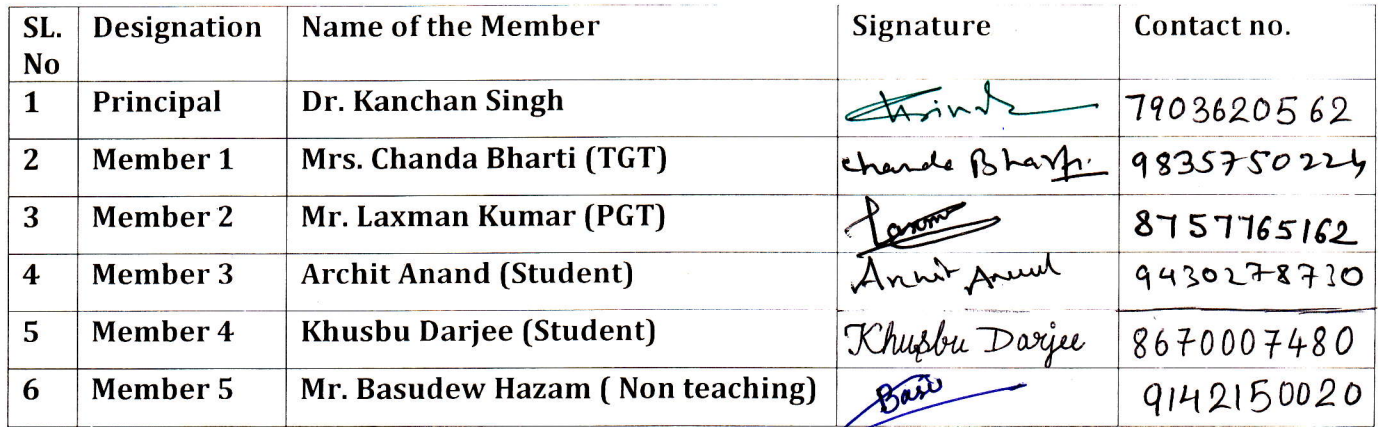 SL. No Designation Name of the Member Signature Contact no.
1 Principal Dr. Kanchan Singh 7903620562
2 Member 1 Mrs. Chanda Bharti (TGT) Chanda Bharti 9835750224
3 Member 2 Mr. Laxman Kumar (PGT) Laxman 8757765162
4 Member 3 Archit Anand (Student) Archit Anand 9430278730
5 Member 4 Khusbu Darjee (Student) Khusbu Darjee 8670007480
6 Member 5 Mr. Basudew Hazam ( Non teaching) Basu 9142150020